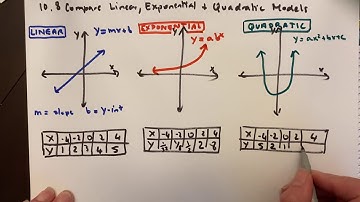 10.8 Compare Linear, Exponential + Quadratic Models
LINEAR
EXPONENTIAL
QUADRATIC
y y=mx+b
x
y y=ab^x
x
y y=ax²+bx+c
x
m = slope b = y-int
X -4 -2 0 2 4
Y 1 2 3 4 5
X -4 -2 0 2 4
Y 1/2 2 8
X -4 -2 0 2 4
Y 5 2 1